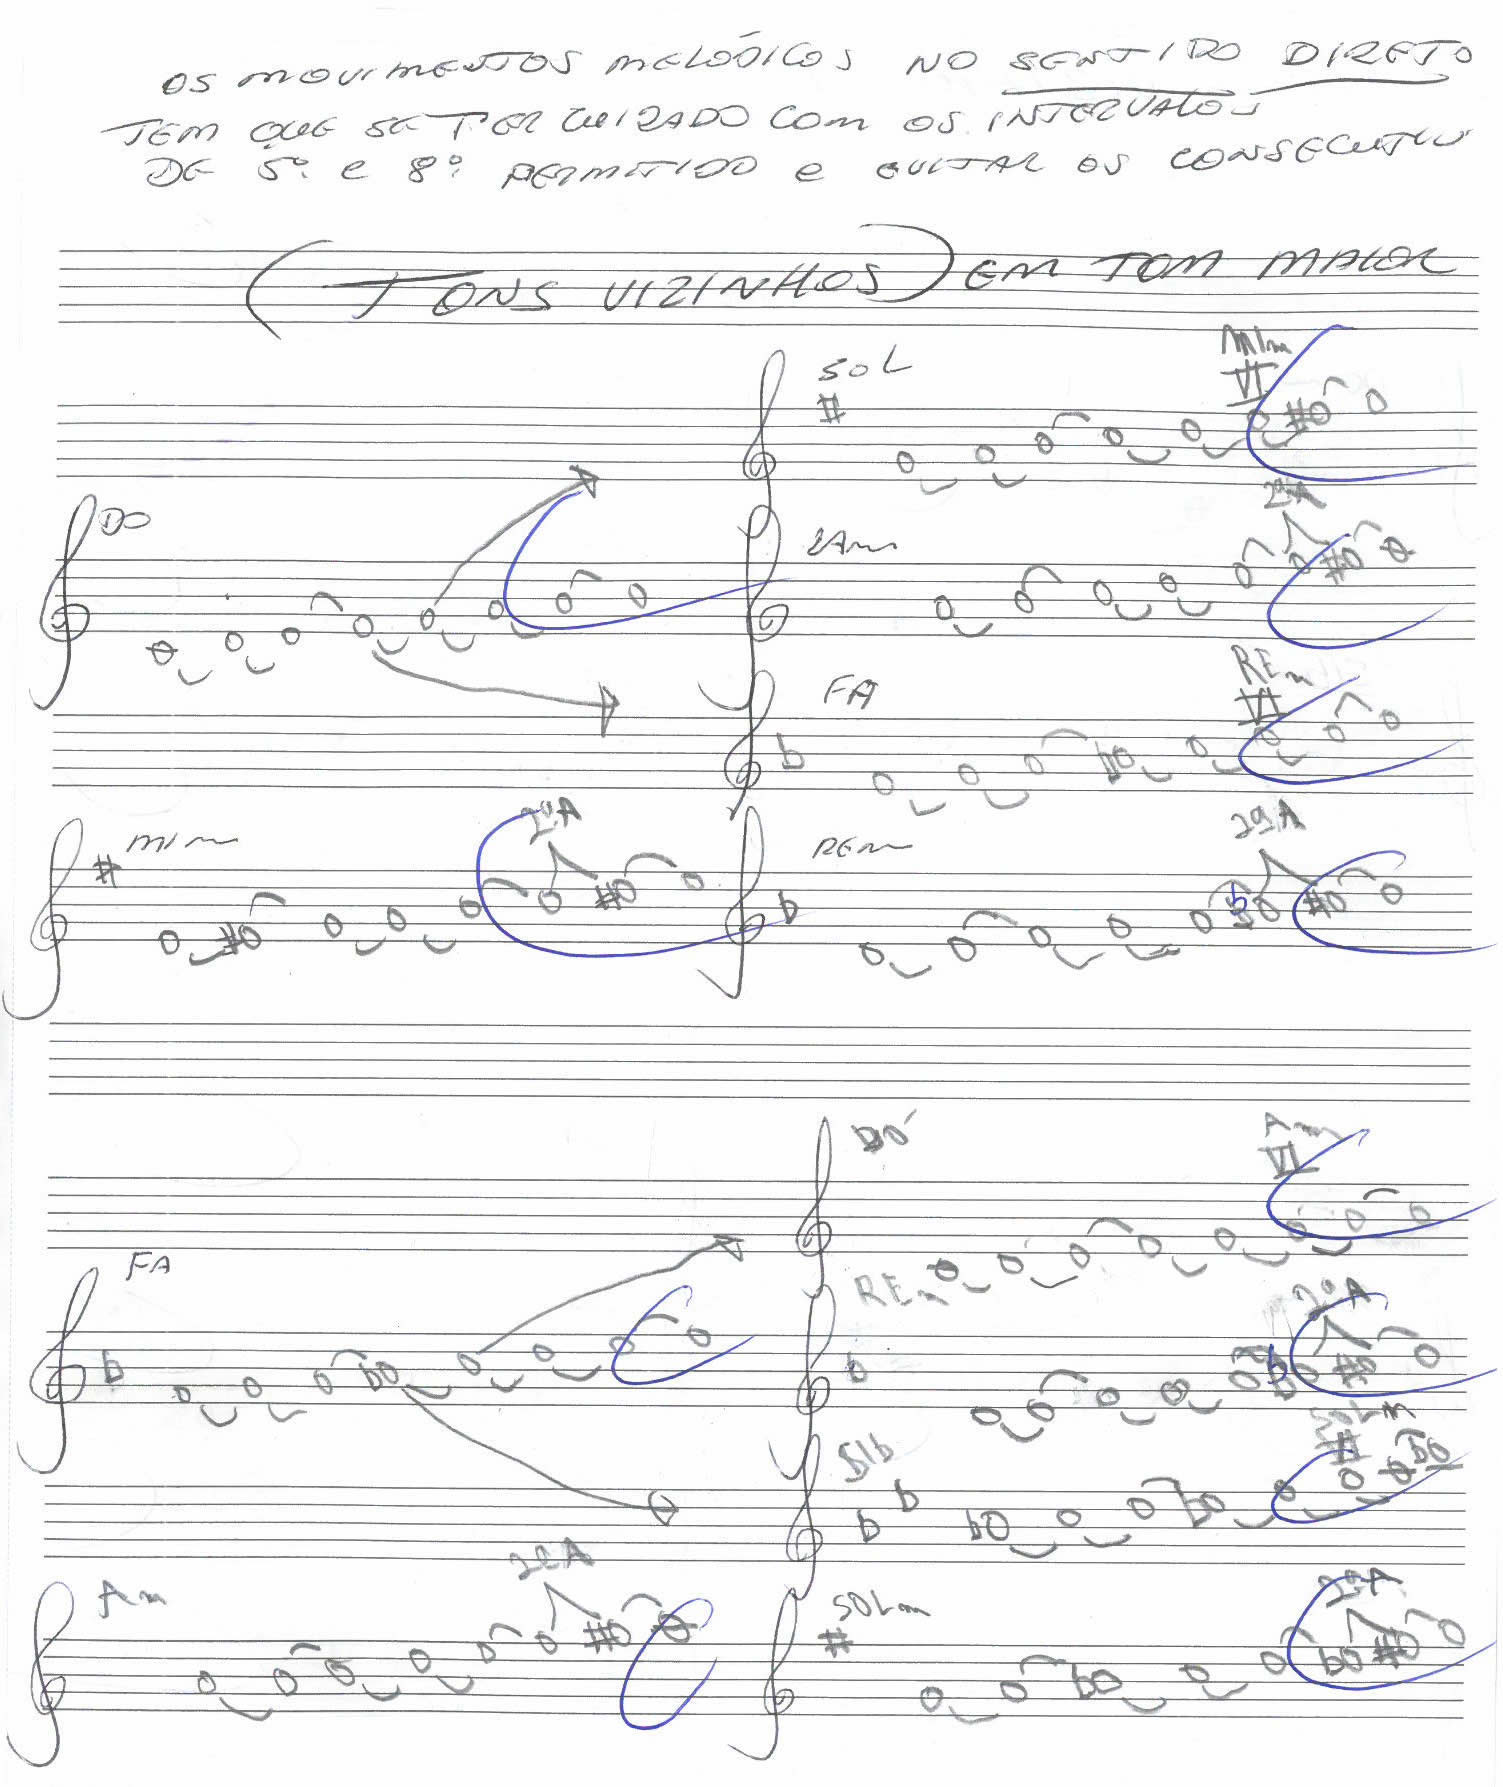 OS MOVIMENTOS MELÓDICOS NO SENTIDO DIRETO
TEM QUE SE TER CUIDADO COM OS INTERVALOS
DE 5º e 8º PERMITIDO e EVITAR OS CONSECUTIVOS
(TONS VIZINHOS) EM TOM MAIOR
SOL
MIm
VI
DO
LAm
2ªA
FA
REm
VI
MIm
2ªA
REm
2ªA
DÓ
Am
VI
FA
REm
2ªA
SIb
SOLm
Am
2ªA
SOLm
2ªA